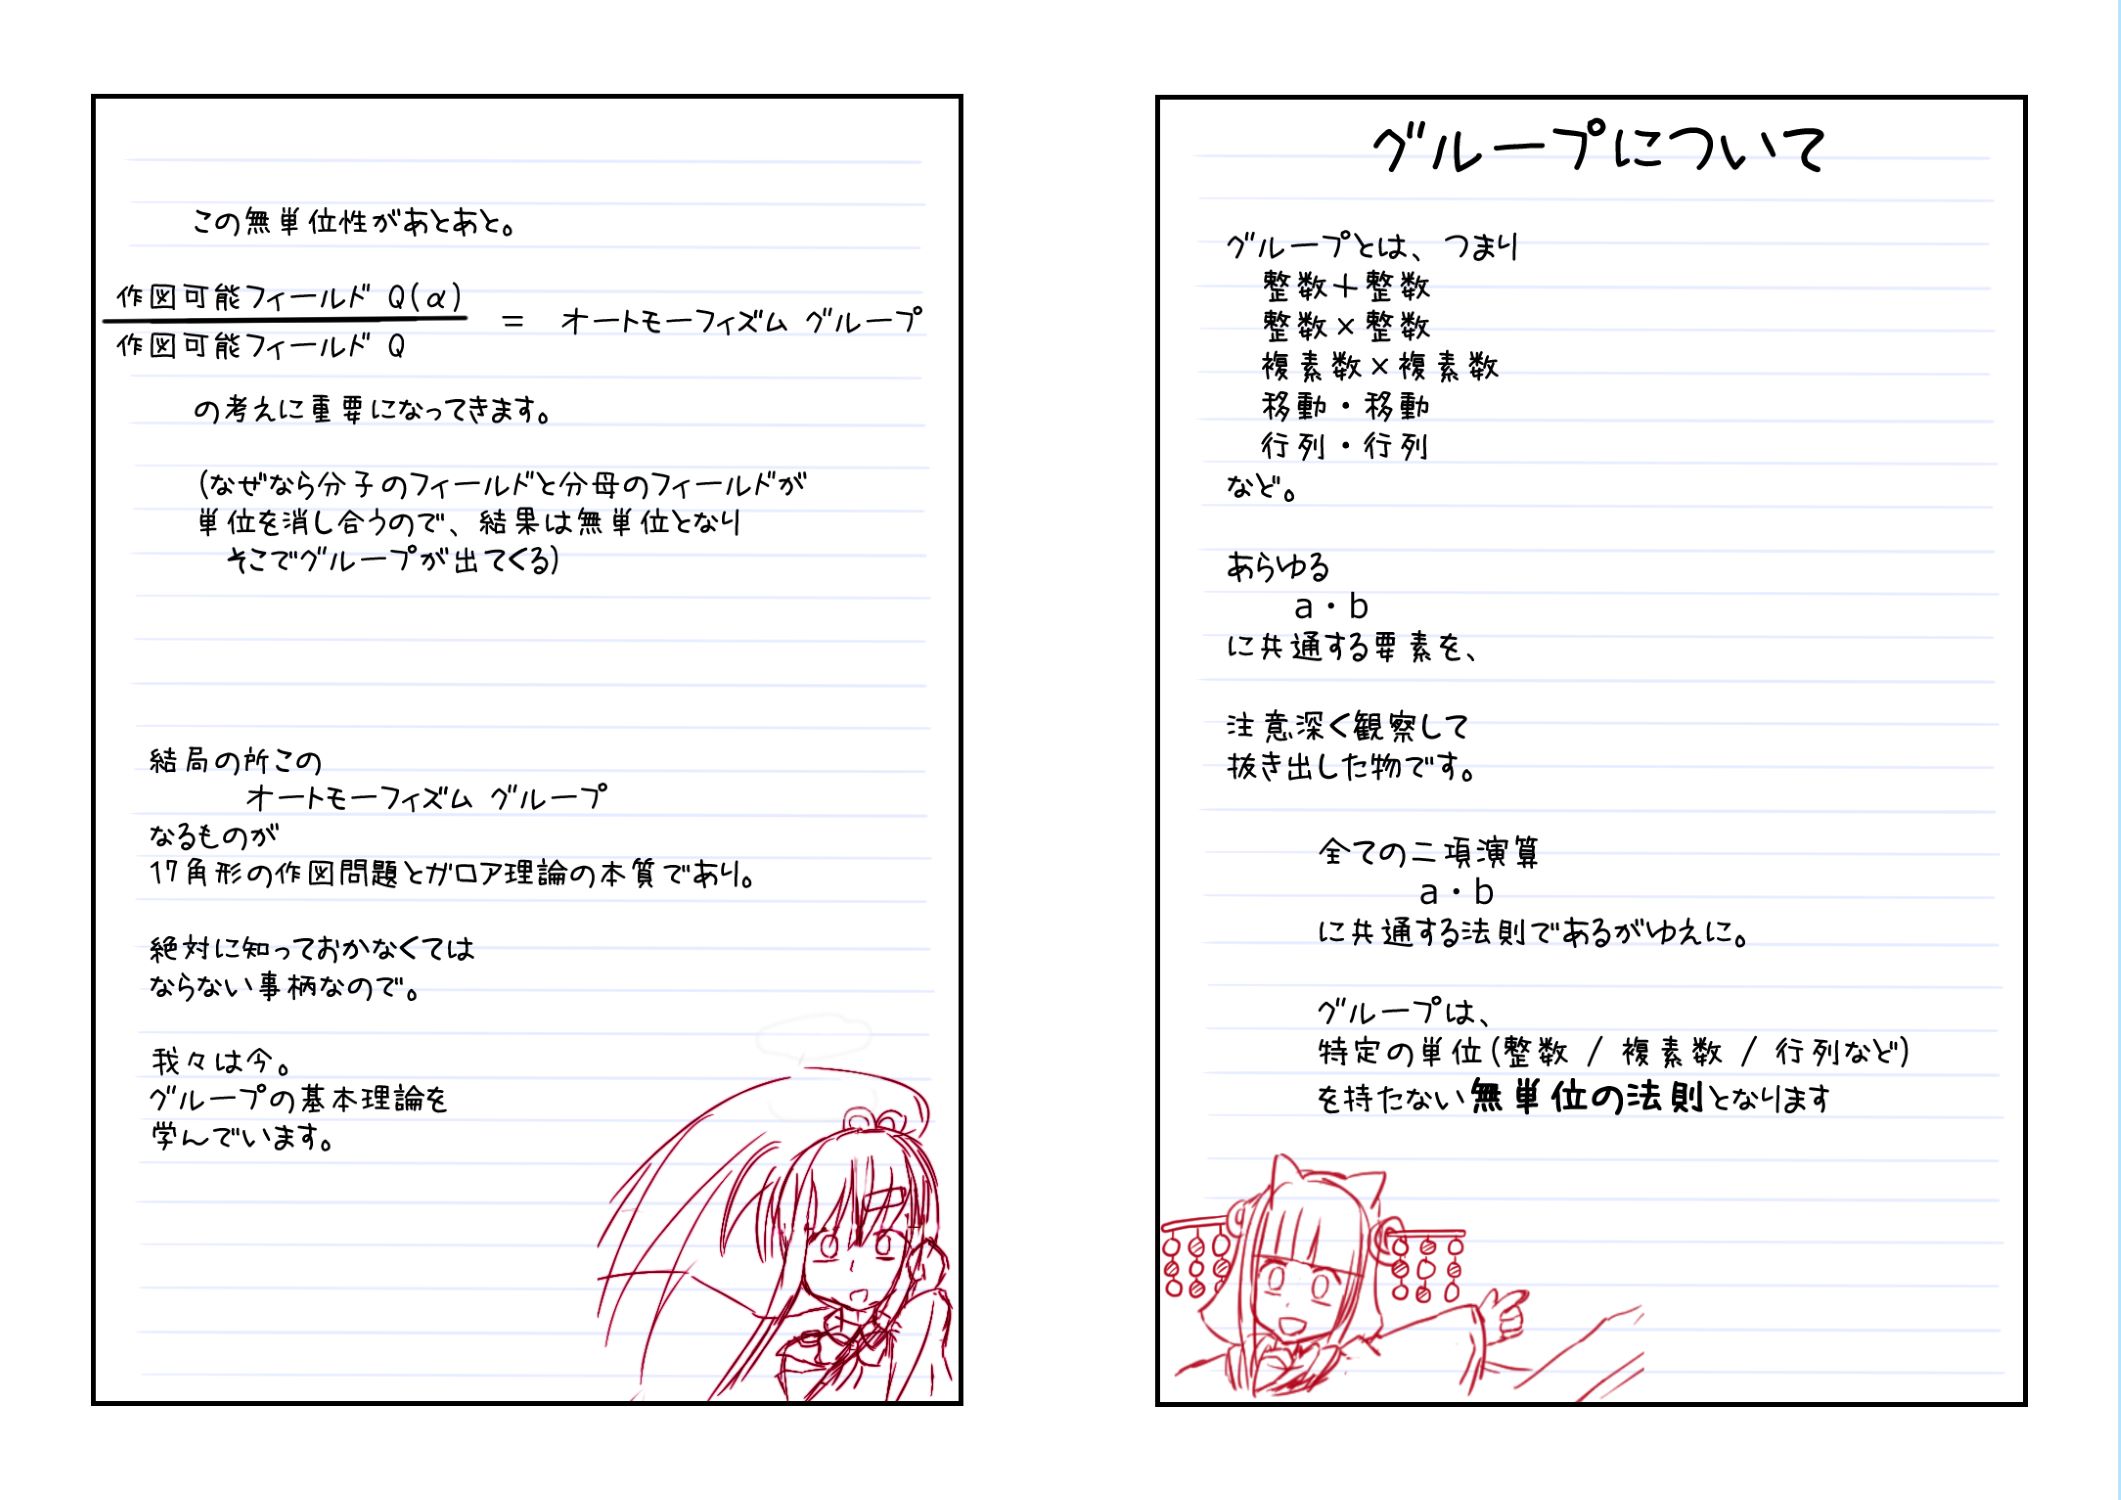 グループについて
グループとは、つまり
整数＋整数
整数×整数
複素数×複素数
移動・移動
行列・行列
など。
あらゆる
a・b
に共通する要素を、
注意深く観察して
抜き出した物です。
全ての二項演算
a・b
に共通する法則であるがゆえに。
グループは、
特定の単位(整数 / 複素数 / 行列など)
を持たない無単位の法則となります
この無単位性があとあと。
作図可能フィールド Q(α)
作図可能フィールド Q
= オートモーフィズム グループ
の考えに重要になってきます。
(なぜなら分子のフィールドと分母のフィールドが
単位を消し合うので、結果は無単位となり
そこでグループが出てくる)
結局の所この
オートモーフィズム グループ
なるものが
17角形の作図問題とガロア理論の本質であり。
絶対に知っておかなくては
ならない事柄なので。
我々は今。
グループの基本理論を
学んでいます。